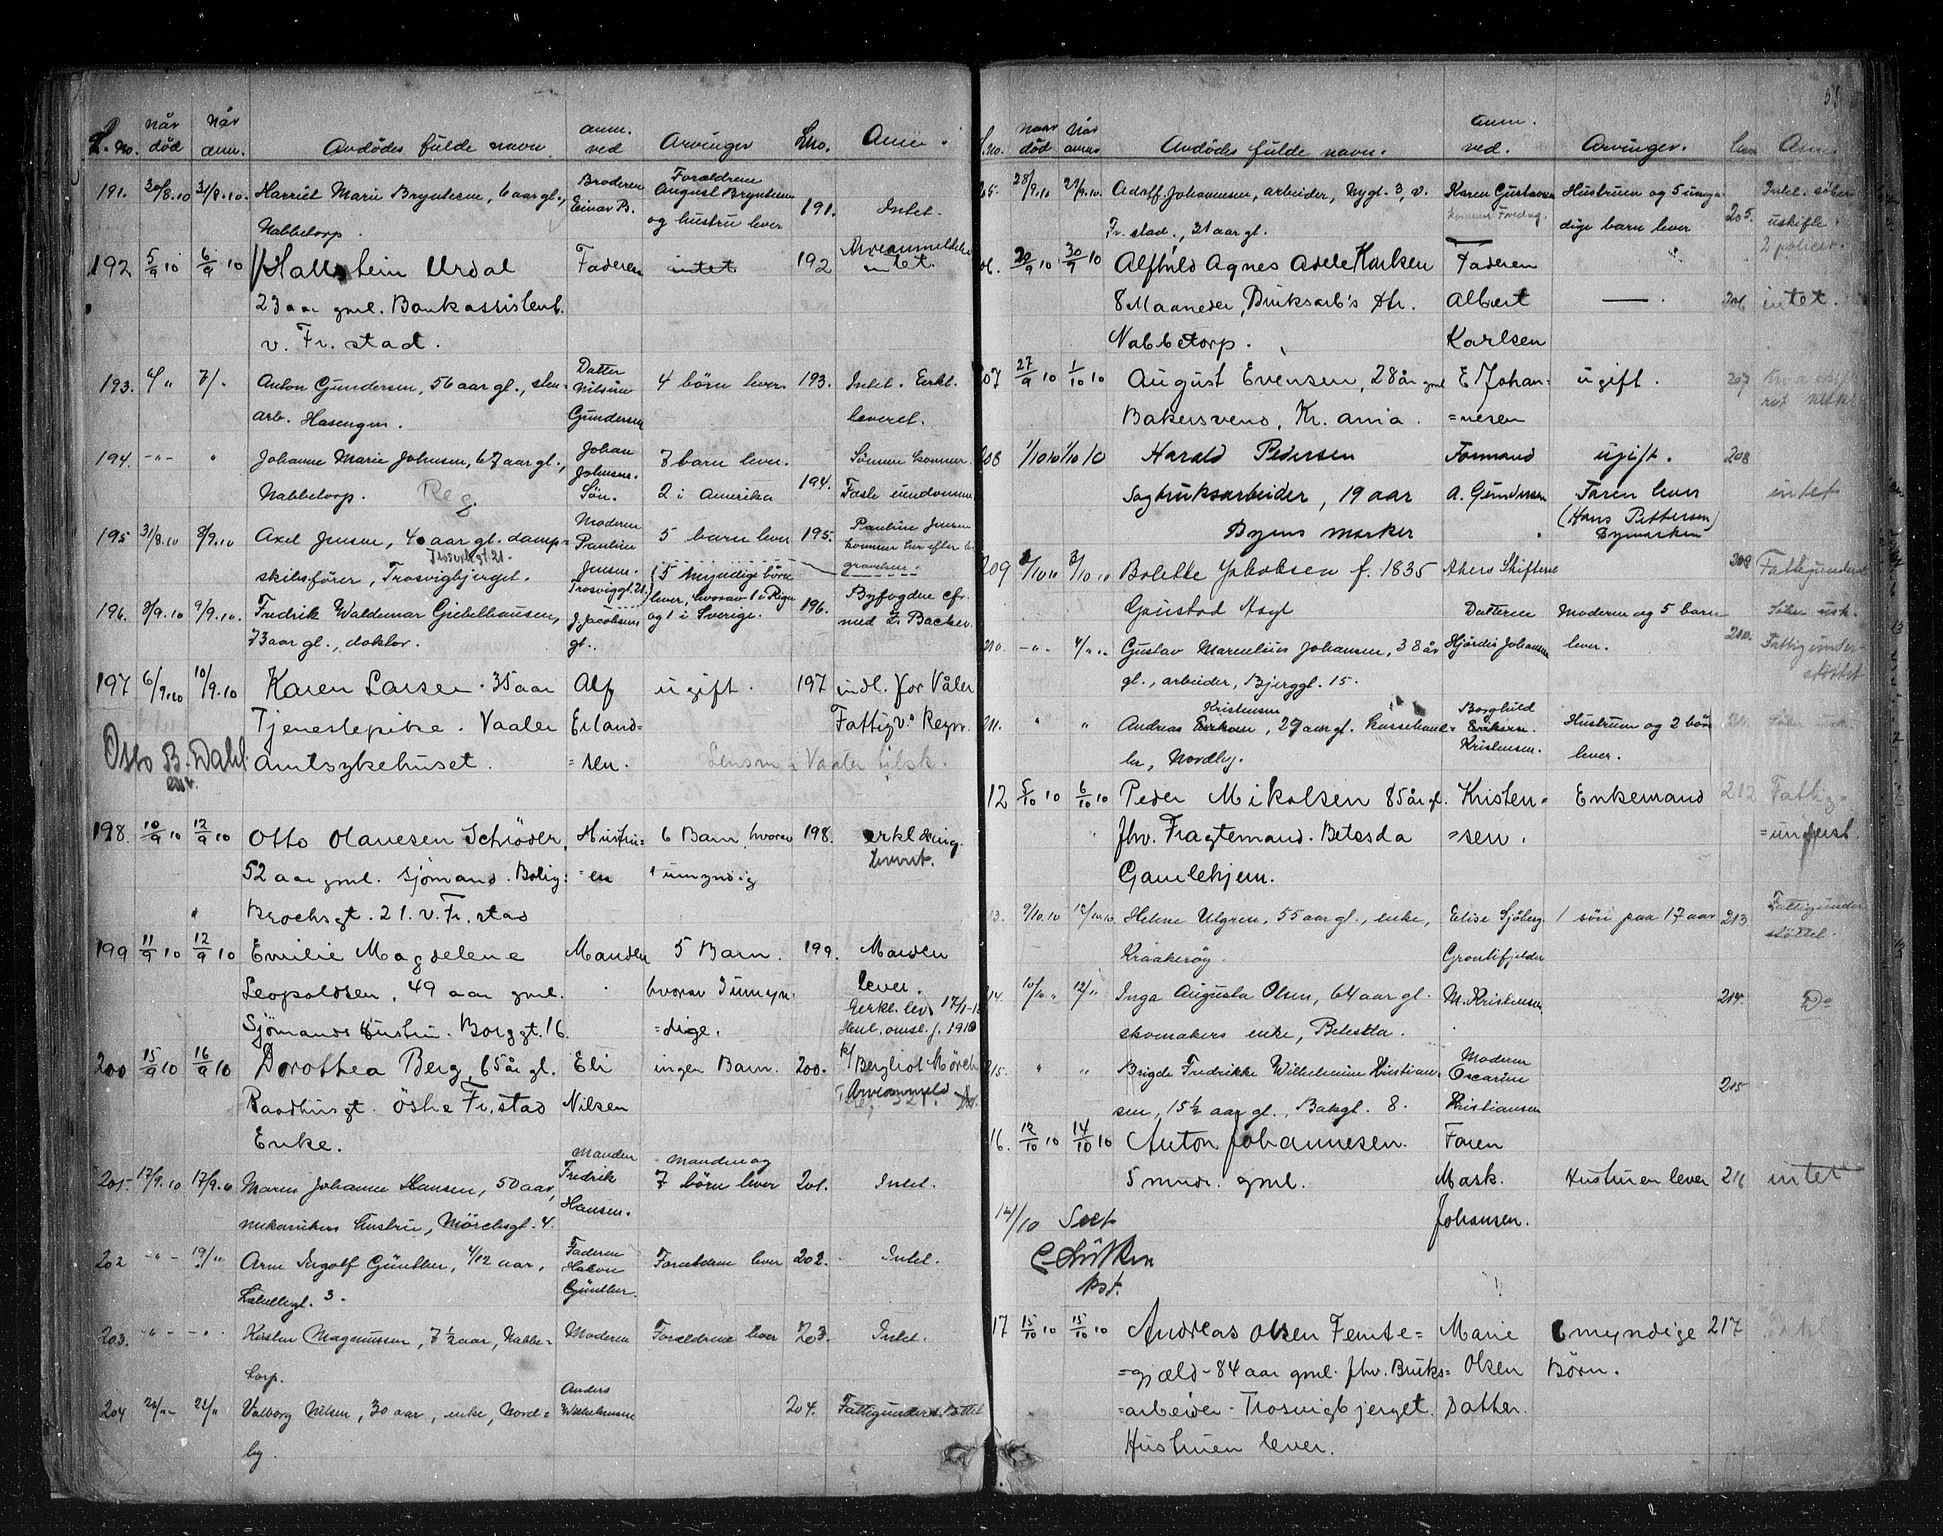 L. No. når død Når anm. Avdødes fulde navn anm. ved Arvinger Lno. Anm.
191. 30/8.10 31/8.10. Harriet Marie Bryntesen, 6 aar gl., Broderen Einar B. Forældrene August Bryntesen og hustru lever 191. Intet.
Nabbetorp.
192 5/9 10 6/9 10 Hallstein Urdal Faderen intet 192 intet.
23 aar gml. Bankassistent.
v. Fr. stad.
193. 7/" Anton Gundersen, 56 aar gl., sten= Datter Nilsine Gundersen 4 børn lever 193. Intet. Erkl.
arb. Hasengen. leveret.
194. -"- " Johanne Marie Johnsen, 67 aar gl., Johan Johnsen. Søn. 7 barn lever. 194. Sønnen kommer.
Nabbetorp. Reg. 2 i Amerika Faste eiendomme
195 31/8.10 8/9.10 Axel Jensen, 40 aar gl. damp= Moderen Pauline Jensen. 5 barn lever 195. Pauline Jensen
Trosvikgt. 21. kommer her efter be
skibsfører, Trosvigbjerget. Trosviggt. 21. gravelsen.
196. 8/9.10 9/9.10. Fredrik Waldemar Gjebelhausen, J. Jacobsens gt. 5 myndige børn lever, hvorav 1 i Riga og 1 i Sverige. 196. Byfogden cfr.
73 aar gl., doktor. med L. Backer.
197 6/9.10 10/9.10 Karen Larsen. 35 aar Alf ugift. 197 indl. for Våler
Tjenestepike. Vaaler Erland= Fattigv. Regn.
Osto B. Dahl. Amtsykehuset. =sen. Lensm. i Vaaler tilsk.
198. 10/9 10 12/9 10 Otto Olavesen Schrøder, Hustru= 6 Barn, hvorav 198. erklæring.
52 aar gml. sjømand. Bolig: =en 1 umyndig levert.
Brochsgt. 21. v. Fr. stad
199 11/9 10 12/9 10 Emilie Magdelene Manden 5 Barn. 199. Manden
Leopoldsen, 49 aar gml. hvorav 3 umyn= lever.
Sjømands hustru. Borggt. 16. =dige. Erkl. lev. 17/1-12
200 15/9 10 16/9 10 Dorothea Berg, 65 år gl. Eli ingen Barn. 200. Bergliot Mørch
Raadhusgt. østre Fr. stad Nilsen Arveanmeld
Enke.
201. 17/9.10 17/9.10 Maren Johanne Hansen, 50 aar, Manden Fredrik Hansen. Manden og 7 børn lever 201. Intet.
mekanikers hustru, Mörchsgt. 4.
202 -"- 19/" Arne Ingolf Günther, 4/12 aar, Faderen Hakon Günther. Forældrene lever 202. Intet.
Labellegt. 3.
203. -"- -"- Kirsten Magnussen, 7 ½ aar, Nabbe= Moderen Forældrene lever 203. Intet.
torp.
204 22/" Valborg Nilsen, 30 aar, enke, Nord= Anders Wilhelmsen 204. Fattigunderstøttet
by.
L. no. naar død Når anm. Avdødes fulde navn. anm. ved. Arvinger. Lno Anm.
05. 28/9.10 29/9.10. Adolf Johannesen, arbeider, Nygt. 3, v. Karen Gustavsen Hustruen og 5 umyn- 205. Intet. søker
Fr. stad., 31 aar gl. kommer Fredag. dige barn lever uskifte.
2 poliser.
06. 29/9 10 30/9 10 Alfhild Agnes Adele Karlsen Faderen
8 Maaneder, Bruksarb's dtr. Albert — . 206 intet.
Nabbetorp. Karlsen
207 27/9 10 1/10 10 August Evensen, 28 år gml E. Johan= ugift. 207
Bakersvend, Kr. ania. =nesen
208 1/10 10 1/10 10 Harald Pedersen Formand ugift. 208
Sagbruksarbeider, 19 aar A. Gundersen Faren lever intet
Byens marker (Hans Pettersen) Bymarken
209 2/10 10 3/10 10 Bolette Jakobsen f. 1835 Akers Skifteret 209 Fattigunderst
Gaustad Asyl
210. -"- 4/"" Gustav Marenlius Johansen, 38 år Datteren Hjördis Johansen Moderen og 5 barn lever. 210. Søker usk. Fattigunder-støttet
gl., arbeider, Bjerggt. 15.
211. " " Andreas Eriksen Kristensen, 29 aar gl. Borghild Eriksen Kristensen. Hustruen og 2 børn lever. 211.
ler, Nordby.
12 5/10 10 6/10 10 Peder Mikalsen 85 år gl. Kristen= Enkemand 212 Fattig=
fhv. Fragtemand. Betesda =sen. =underst.
Gamlehjem.
13. 9/10.10 12/10.10. Helene Ulgren, 55 aar gl., enke, Elise Sjøberg 1 søn paa 17 aar 213 Fattigunder
Kraakerøy. støttet.
14. 10/10 " 12/" Inga Augusta Olsen, 64 aar gl. M. Kristiansen 214. Do
skomakers enke, Betesda.
215. " " Brigde Fredrikke Wilhelmine Kristian= Moderen Oscarine Kristiansen 215
sen, 15 ½ aar gl., Bakgt. 8.
16. 12/10 10 14/10 10 Anton Johannesen. Faren
5 mndr. gml. Mask. Hustruen lever 216 intet
Johansen.
14/10 Sett
C. Lütken
kst.
17 15/10 10 15/10 10 Andreas Olsen Femte= Marie 6 myndige 217
=gjæld - 84 aar gml. fhv. Bruks= Olsen Børn.
=arbeider - Trosvigbjerget. Datter.
Hustruen lever.